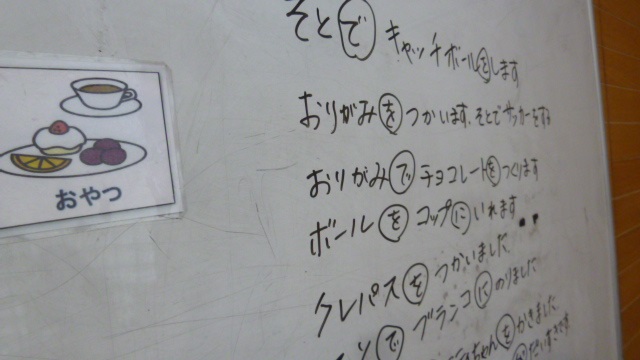 おやつ
そとで キャッチボールをします
おりがみを つかいます。そとでサッカーをする
おりがみで チョコレートをつくります
ボールを コップに いれます
クレパスを つかいました
で ブランコに のりました
ちゃんを かきました